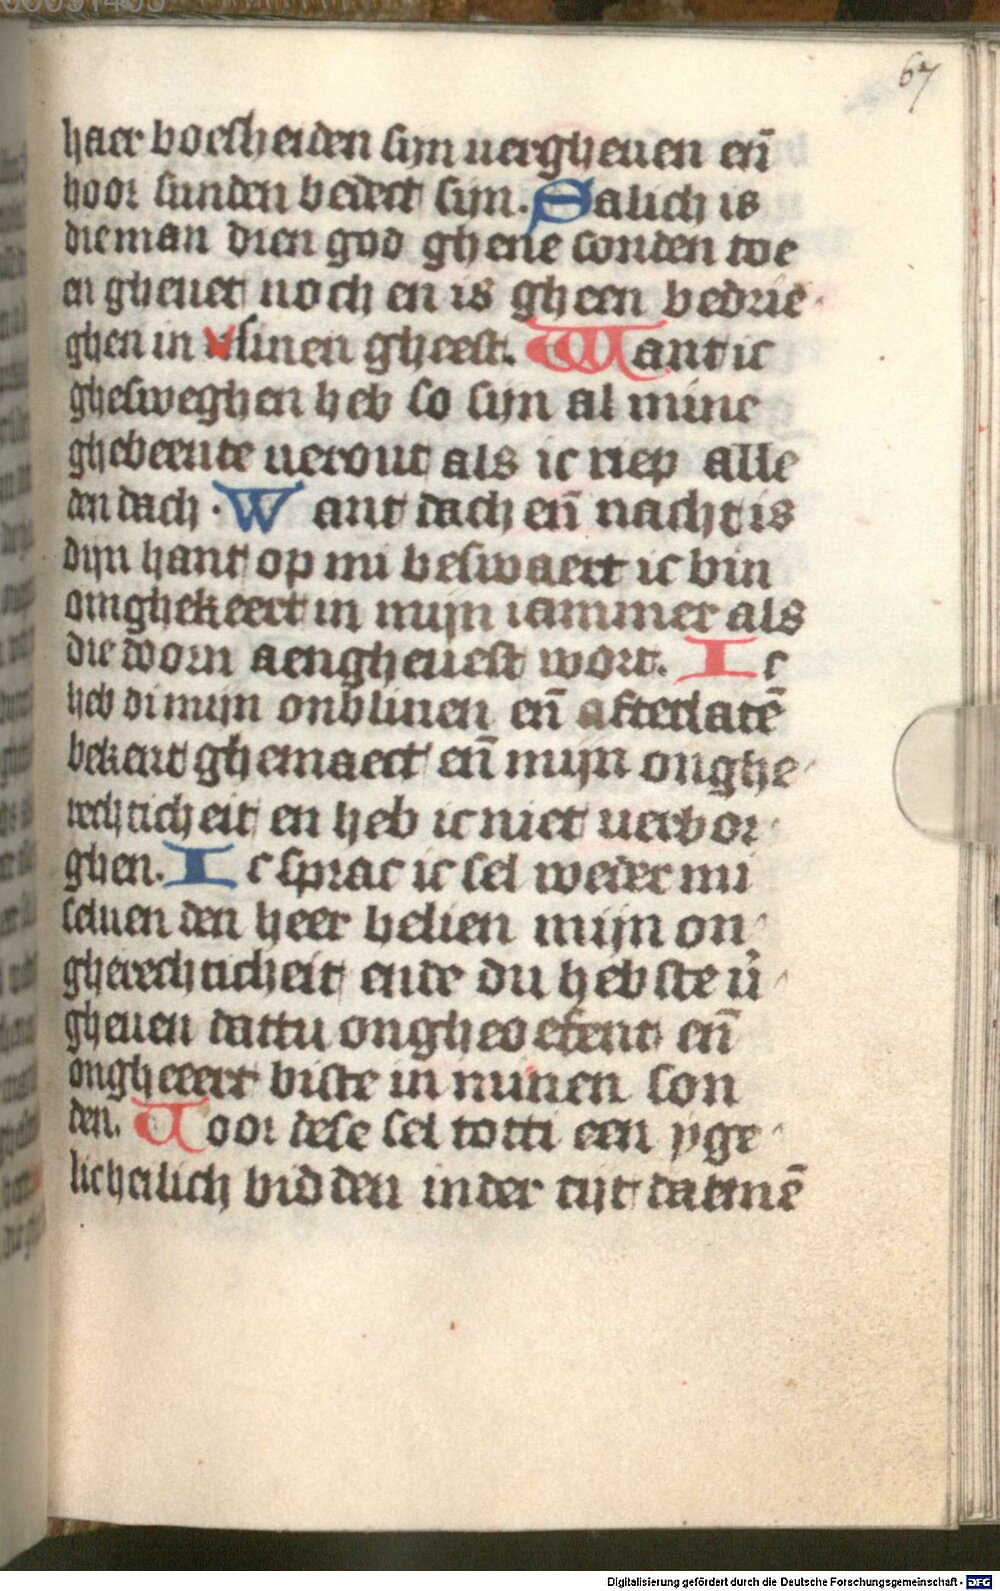 67
haer boesheiden sijn uergheuen en̄
hoor sunden bedect sijn. Salich is
die man dien god ghene sonden toe
en gheuet noch en is gheen bedrie
ghen in sinen gheest. Want ic
ghesweghen heb so sijn al mine
ghebeente uerout als ic riep alle
den dach. Want dach en̄ nacht is
dijn hant op mi beswaert ic bin
omghekeert in mijn iammer als
die dorn aengheuest wort. Ic
heb di mijn onbliuen en̄ afterlatē
bekent ghemaect en̄ mijn onghe
rechticheit en heb ic niet uerbor
ghen. Ic sprac ic sel weder mi
seluen den heer belien mijn on
gherechticheit ende du hebste ū
gheuen dattu onghe oefent en̄
ongheeert biste in minen son
den. Uoor dese sel totti een yge
lic heilich bidden in der tijt datmē
Digitalisierung gefördert durch die Deutsche Forschungsgemeinschaft - DFG